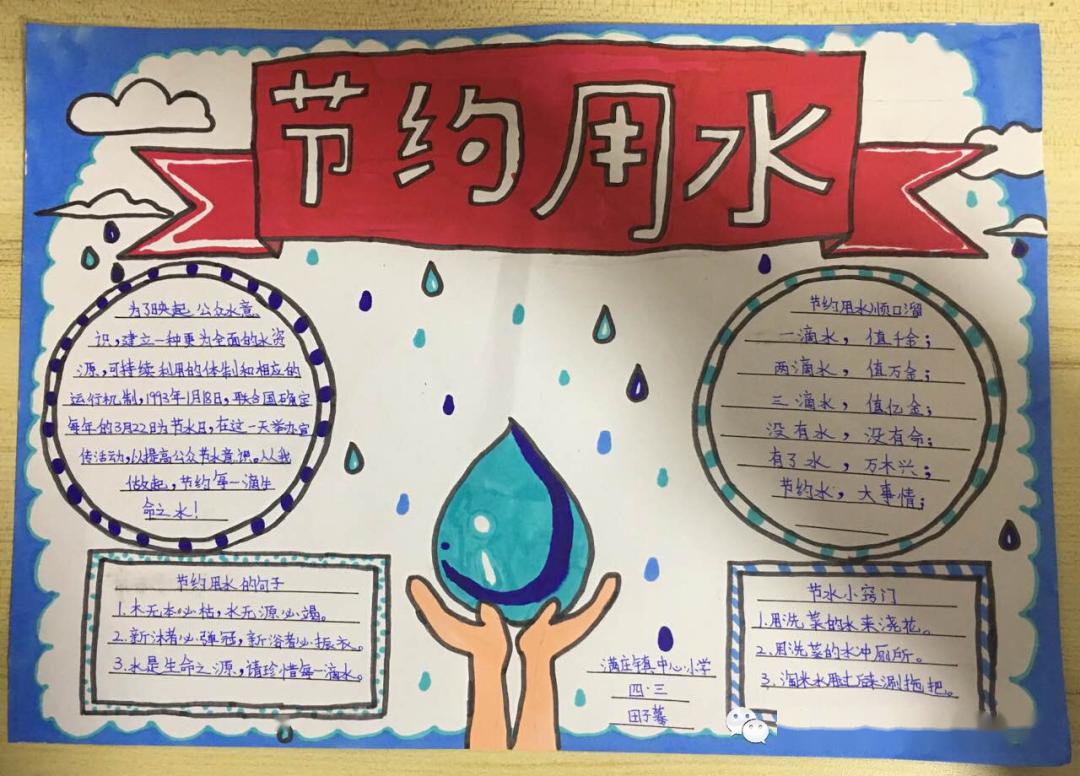 节约用水
为了唤起公众水意
识,建立一种更为全面的水资
源,可持续利用的体制和相应的
运行机制,1993年1月18日,联合国确定
每年的3月22日为节水日,在这一天举办宣
传活动,以提高公众节水意识。从我
做起,节约每一滴生
命之水!
节约用水顺口溜
一滴水,值千金;
两滴水,值万金;
三滴水,值亿金;
没有水,没有命;
有了水,万木兴;
节约水,大事情;
节约用水的句子
1.木无本必枯,水无源必竭。
2.新沐者必弹冠,新浴者必振衣。
3.水是生命之源,请珍惜每一滴水。
节水小窍门
1.用洗菜的水来浇花。
2.用洗菜的水冲厕所。
3.淘米水用过后来涮拖把。
满庄镇中心小学
四·三
田子